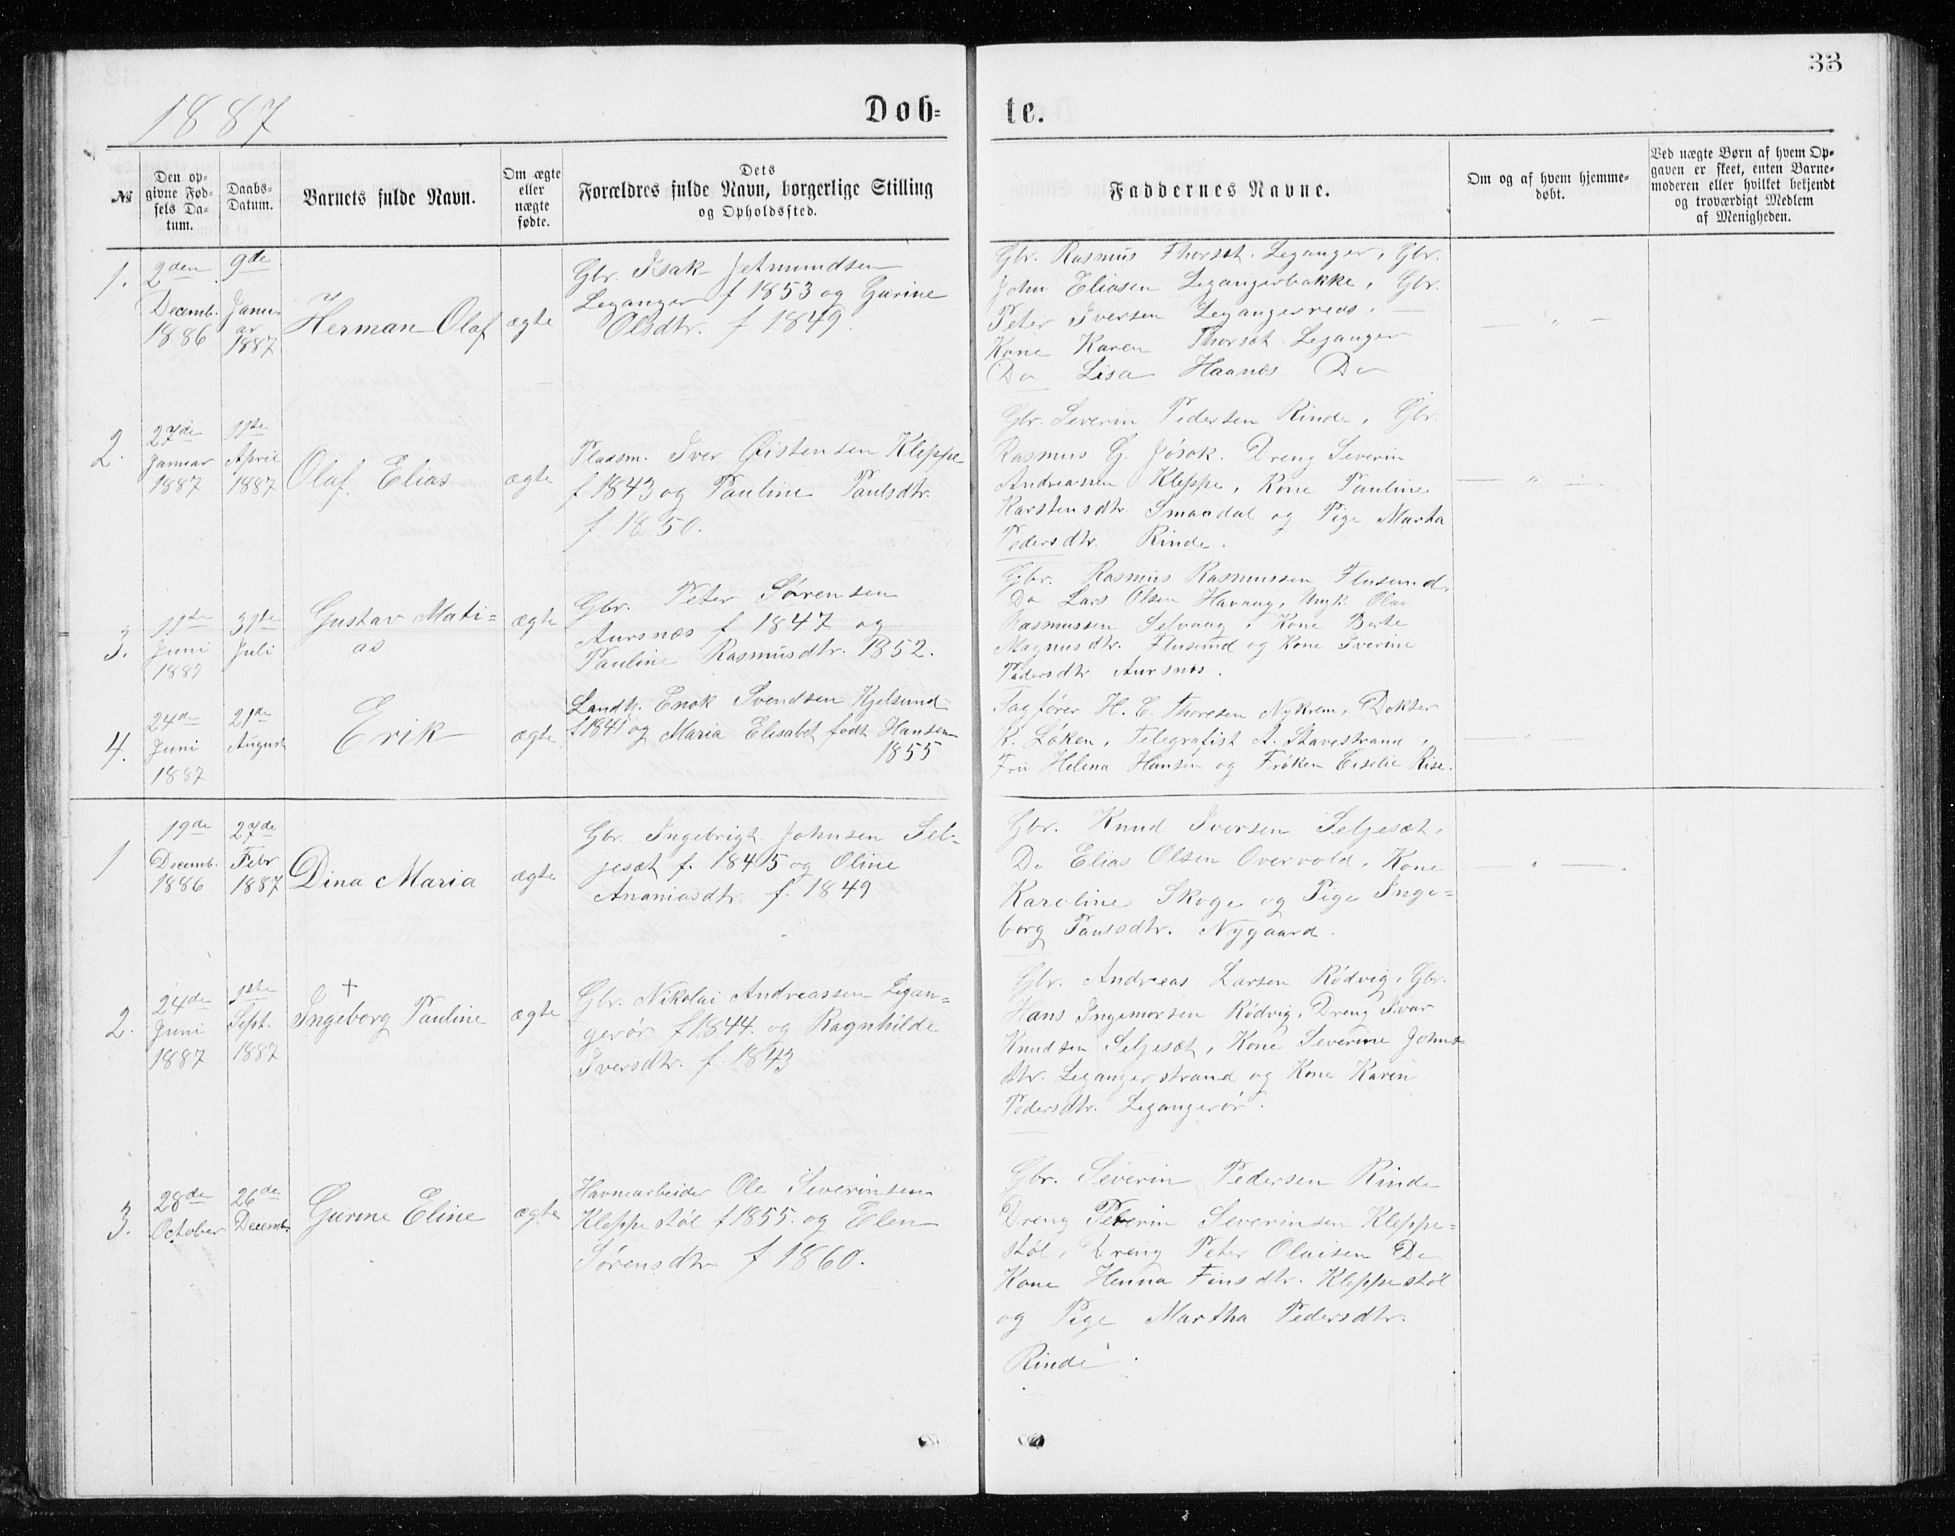 33
1887
Dob- te.
No
Den op-
givne Fød-
sels Da-
tum.
Daabs-
Datum.
Barnets fulde Navn.
Om ægte
eller
uægte
fødte.
Dets
Forældres fulde Navn, borgerlige Stilling
og Opholdssted.
Faddernes Navne.
Om og af hvem hjemme-
døbt.
Ved uægte Børn af hvem Op-
gaven er skeet, enten Barne-
moderen eller hvilket bekjendt
og troværdigt Medlem
af Menigheden.
1.
2den
Decemb.
1886
9de
Janu-
ar
1887
Herman Olaf
ægte
Gbr. Isak Jetmundsen
Leganger f 1853 og Gurine
Olsdtr. f 1849.
Gbr. Rasmus Thorset Leganger, Gbr.
John Eliasen Legangerbakke, Gbr.
Peter Iversen
Kone Karen Thorset Leganger
Do Lisa Haanes Do
— " —
2.
27de
Januar
1887
11te
April
1887
Olaf Elias
ægte
Pladsm. Iver Øistensen Kleppe
f 1843 og Pauline Paulsdtr.
f 1850.
Gbr. Severin Pedersen Rinde, Gbr.
Rasmus G. Jøsok. Dreng Severin
Andreassen Kleppe, Kone Pauline
Karstensdtr. Smaadal og Pige Martha
Pedersdtr. Rinde.
— " —
3.
11te
Juni
1887
31te
Juli
Gustav Mati-
as
ægte
Gbr. Peter Sørensen
Aursnæs f 1847 og
Pauline Rasmusdtr. 1852.
Gbr. Rasmus Rasmussen Flusund,
Do Lars Olsen Havaag, Ungk. Olai
Rasmussen Selvaag, Kone Berte
Magnusdtr. Flusund og Kone Iverine
Pedersdtr. Aursnæs.
4.
24de
Juni
1887
21de
August
Erik
ægte
Landh. Enok Svendsen Kjelsund
f 1841 og Maria Elisabet født Hansen
1855
Sagfører H. C. Thoresen Nykrem, Dokter
K. Løken, Telegrafist A. Stavestrand,
Fru Helena Hansen og Frøken Rise.
— " —
1
19de
Decemb.
1886
27de
Febr
1887
Dina Maria
ægte
Gbr. Ingebrigt Johnsen Sel-
jesæt f. 1845 og Oline
Ananiasdtr. f. 1849
Gbr. Knud Iversen Seljesæt,
Do Elias Olsen Overvold, Kone
Karoline Skoge og Pige Inge-
borg Paulsdtr. Nygaard.
— " —
2.
24de
Juni
1887
1ste
Sept.
1887
+
Ingeborg Pauline
ægte
Gbr. Nikolai Andreassen Legan-
gerør f 1844. og Ragnhilde
Iversdtr. f. 1843
Gbr. Andreas Larsen Rødvig, Gbr.
Hans Ingemorsen Rødvig, Dreng Ivar
Knudsen Seljesæt, Kone Severine Johns-
dtr. Legangerstrand og Kone Karen
Pedersdtr. Legangerør.
3.
28de
October
26de
Decemb.
Gurine Eline
ægte
Havnearbeider Ole Severinsen
Kleppestøl f 1855. og Elen
Sørensdtr f 1860.
Gbr. Severin Pedersen Rinde
Dreng Severinsen Kleppe-
støl, Dreng Peter Olaisen Do
Kone Henna Finsdtr. Kleppestøl
og Pige Martha Pedersdtr.
Rinde.